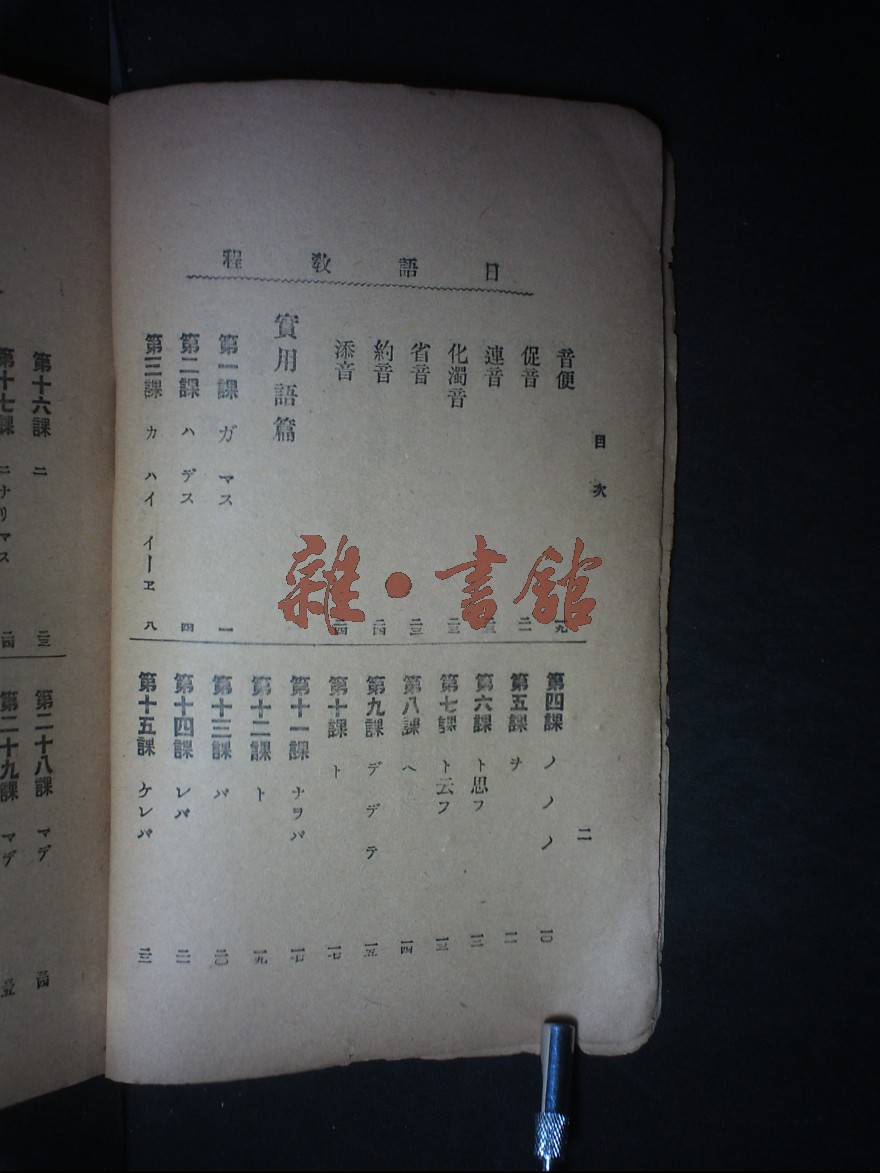 日語教程
目次
二
音便 一九
促音 二一
連音
化濁音
省音
約音 二四
添音 二四
實用語篇
第一課 ガ マス 一
第二課 ハ デス 四
第三課 カ ハイ イーヱ 八
第四課 ノ ノ ノ 一〇
第五課 ヲ 一一
第六課 ト思フ 一三
第七課 ト云フ 一三
第八課 ヘ 一四
第九課 デ デ テ 一五
第十課 ト 一七
第十一課 ナラバ 一七
第十二課 ト 一九
第十三課 バ 二〇
第十四課 レバ 二一
第十五課 ケレバ
第十六課 ニ 二三
第十七課 ニナリマス 二四
第二十八課 マデ
第二十九課 マデ
雜·書舘